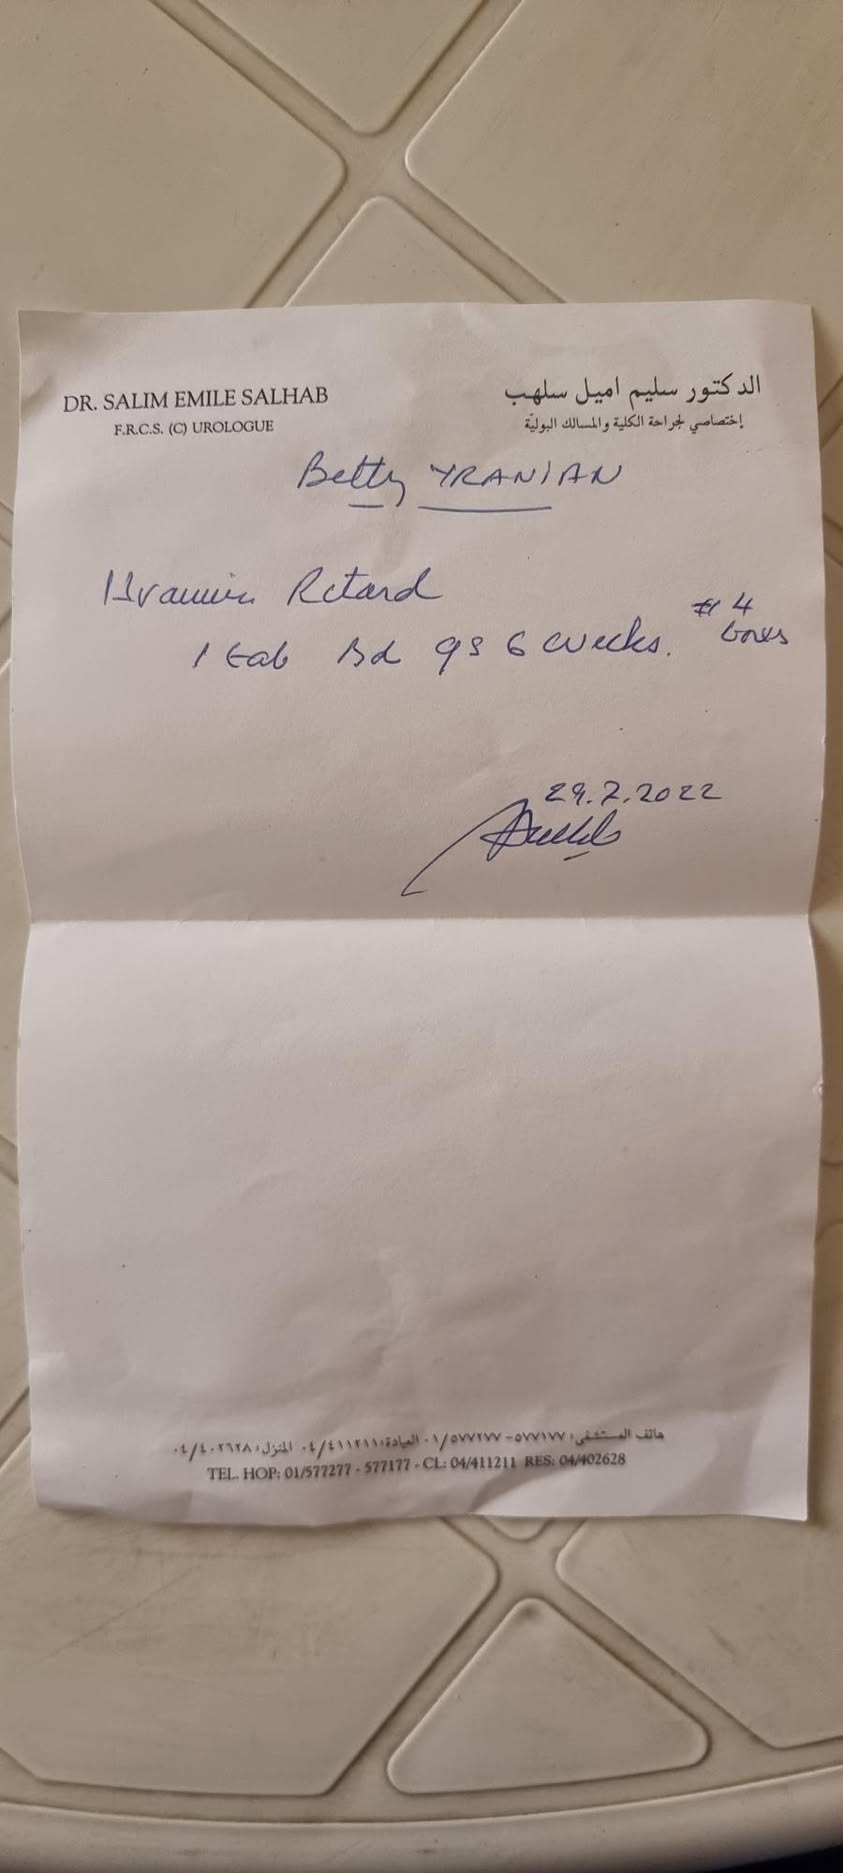 DR. SALIM EMILE SALHAB
F.R.C.S. (C) UROLOGUE
الدكتور سليم اميل سلهب
إختصاصي لجراحة الكلية والمسالك البوليّة
Betty YRANIAN
Retard
1 tab Bd qs 6 weeks.
# 4
boxes
29.7.2022
هاتف المستشفى: ٥٧٧١٧٧ - ٠١/٥٧٧٢٧٧ العيادة: ٠٤/٤١١٢١١ المنزل: ٠٤/٤٠٢٦٢٨
TEL. HOP: 01/577277 - 577177 - CL: 04/411211 RES: 04/402628